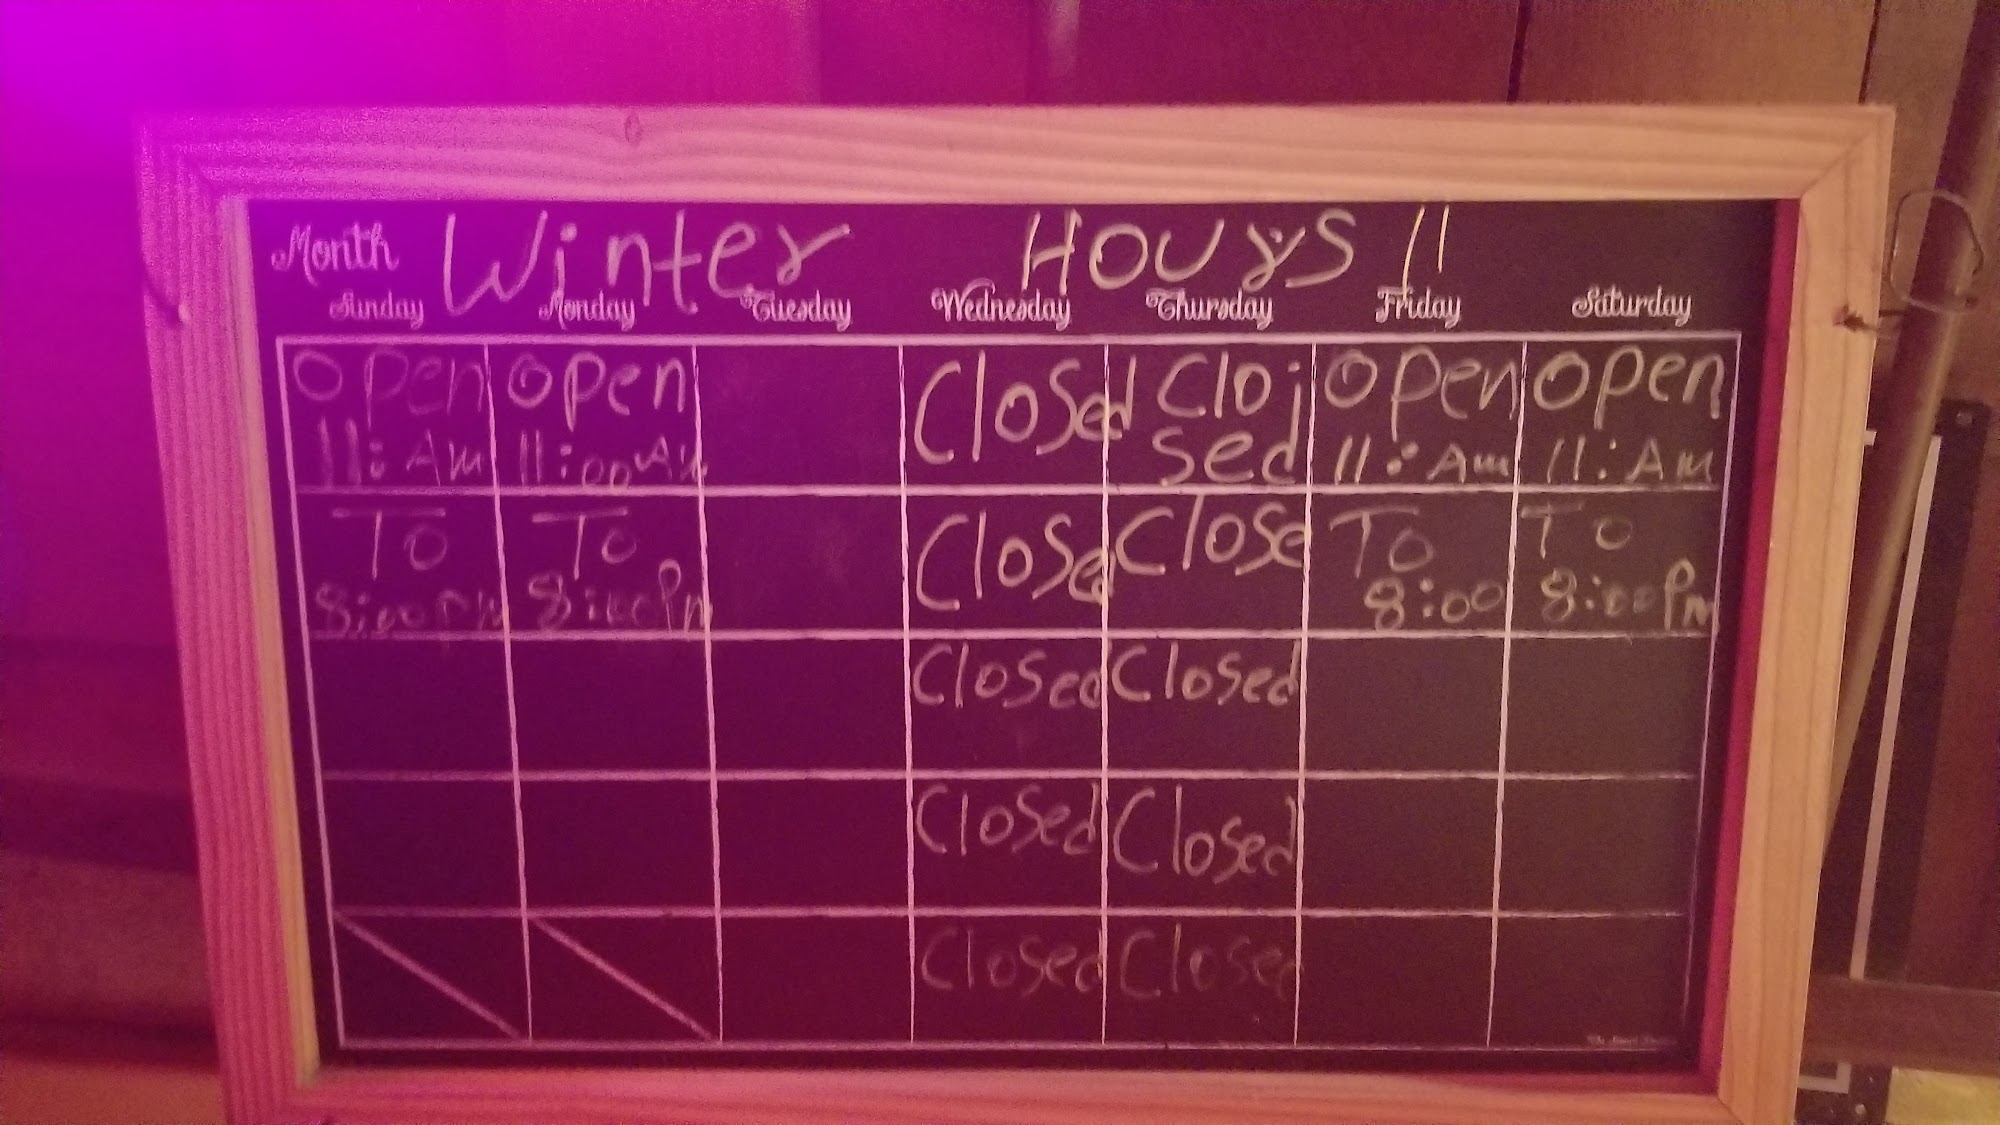 Month Winter Hours !!
Sunday Monday Tuesday Wednesday Thursday Friday Saturday
Open Open Closed Clo Open Open
11: AM 11:00 AM sed 11: Am 11: AM
To To Closed Close To To
8:00 PM 8:00 Pm 8:00 8:00 Pm
Closed Closed
Closed Closed
Closed Closed